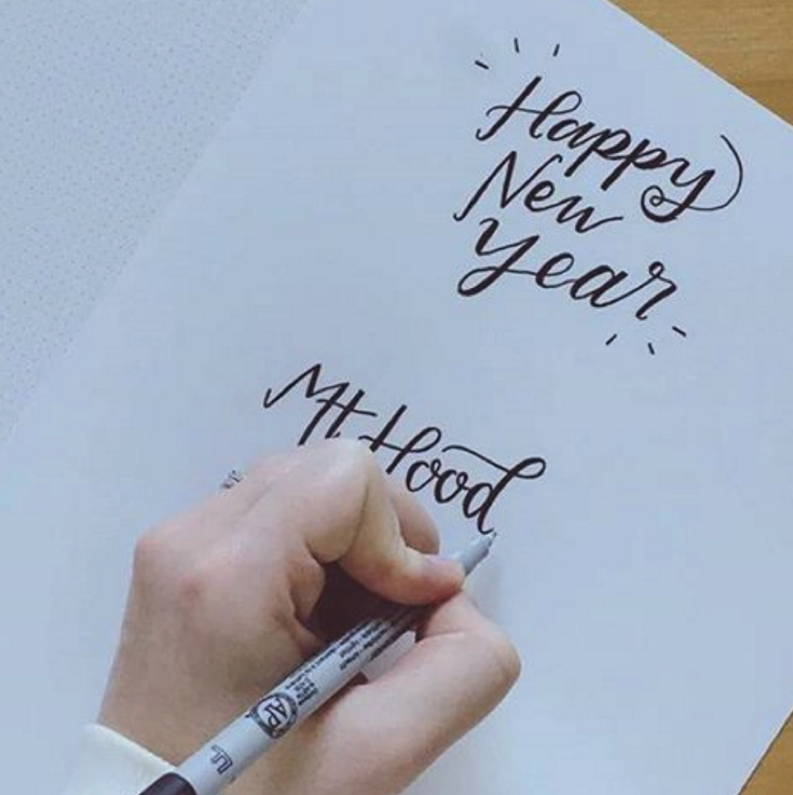 Happy
New
Year
Mt Hood
AP
F